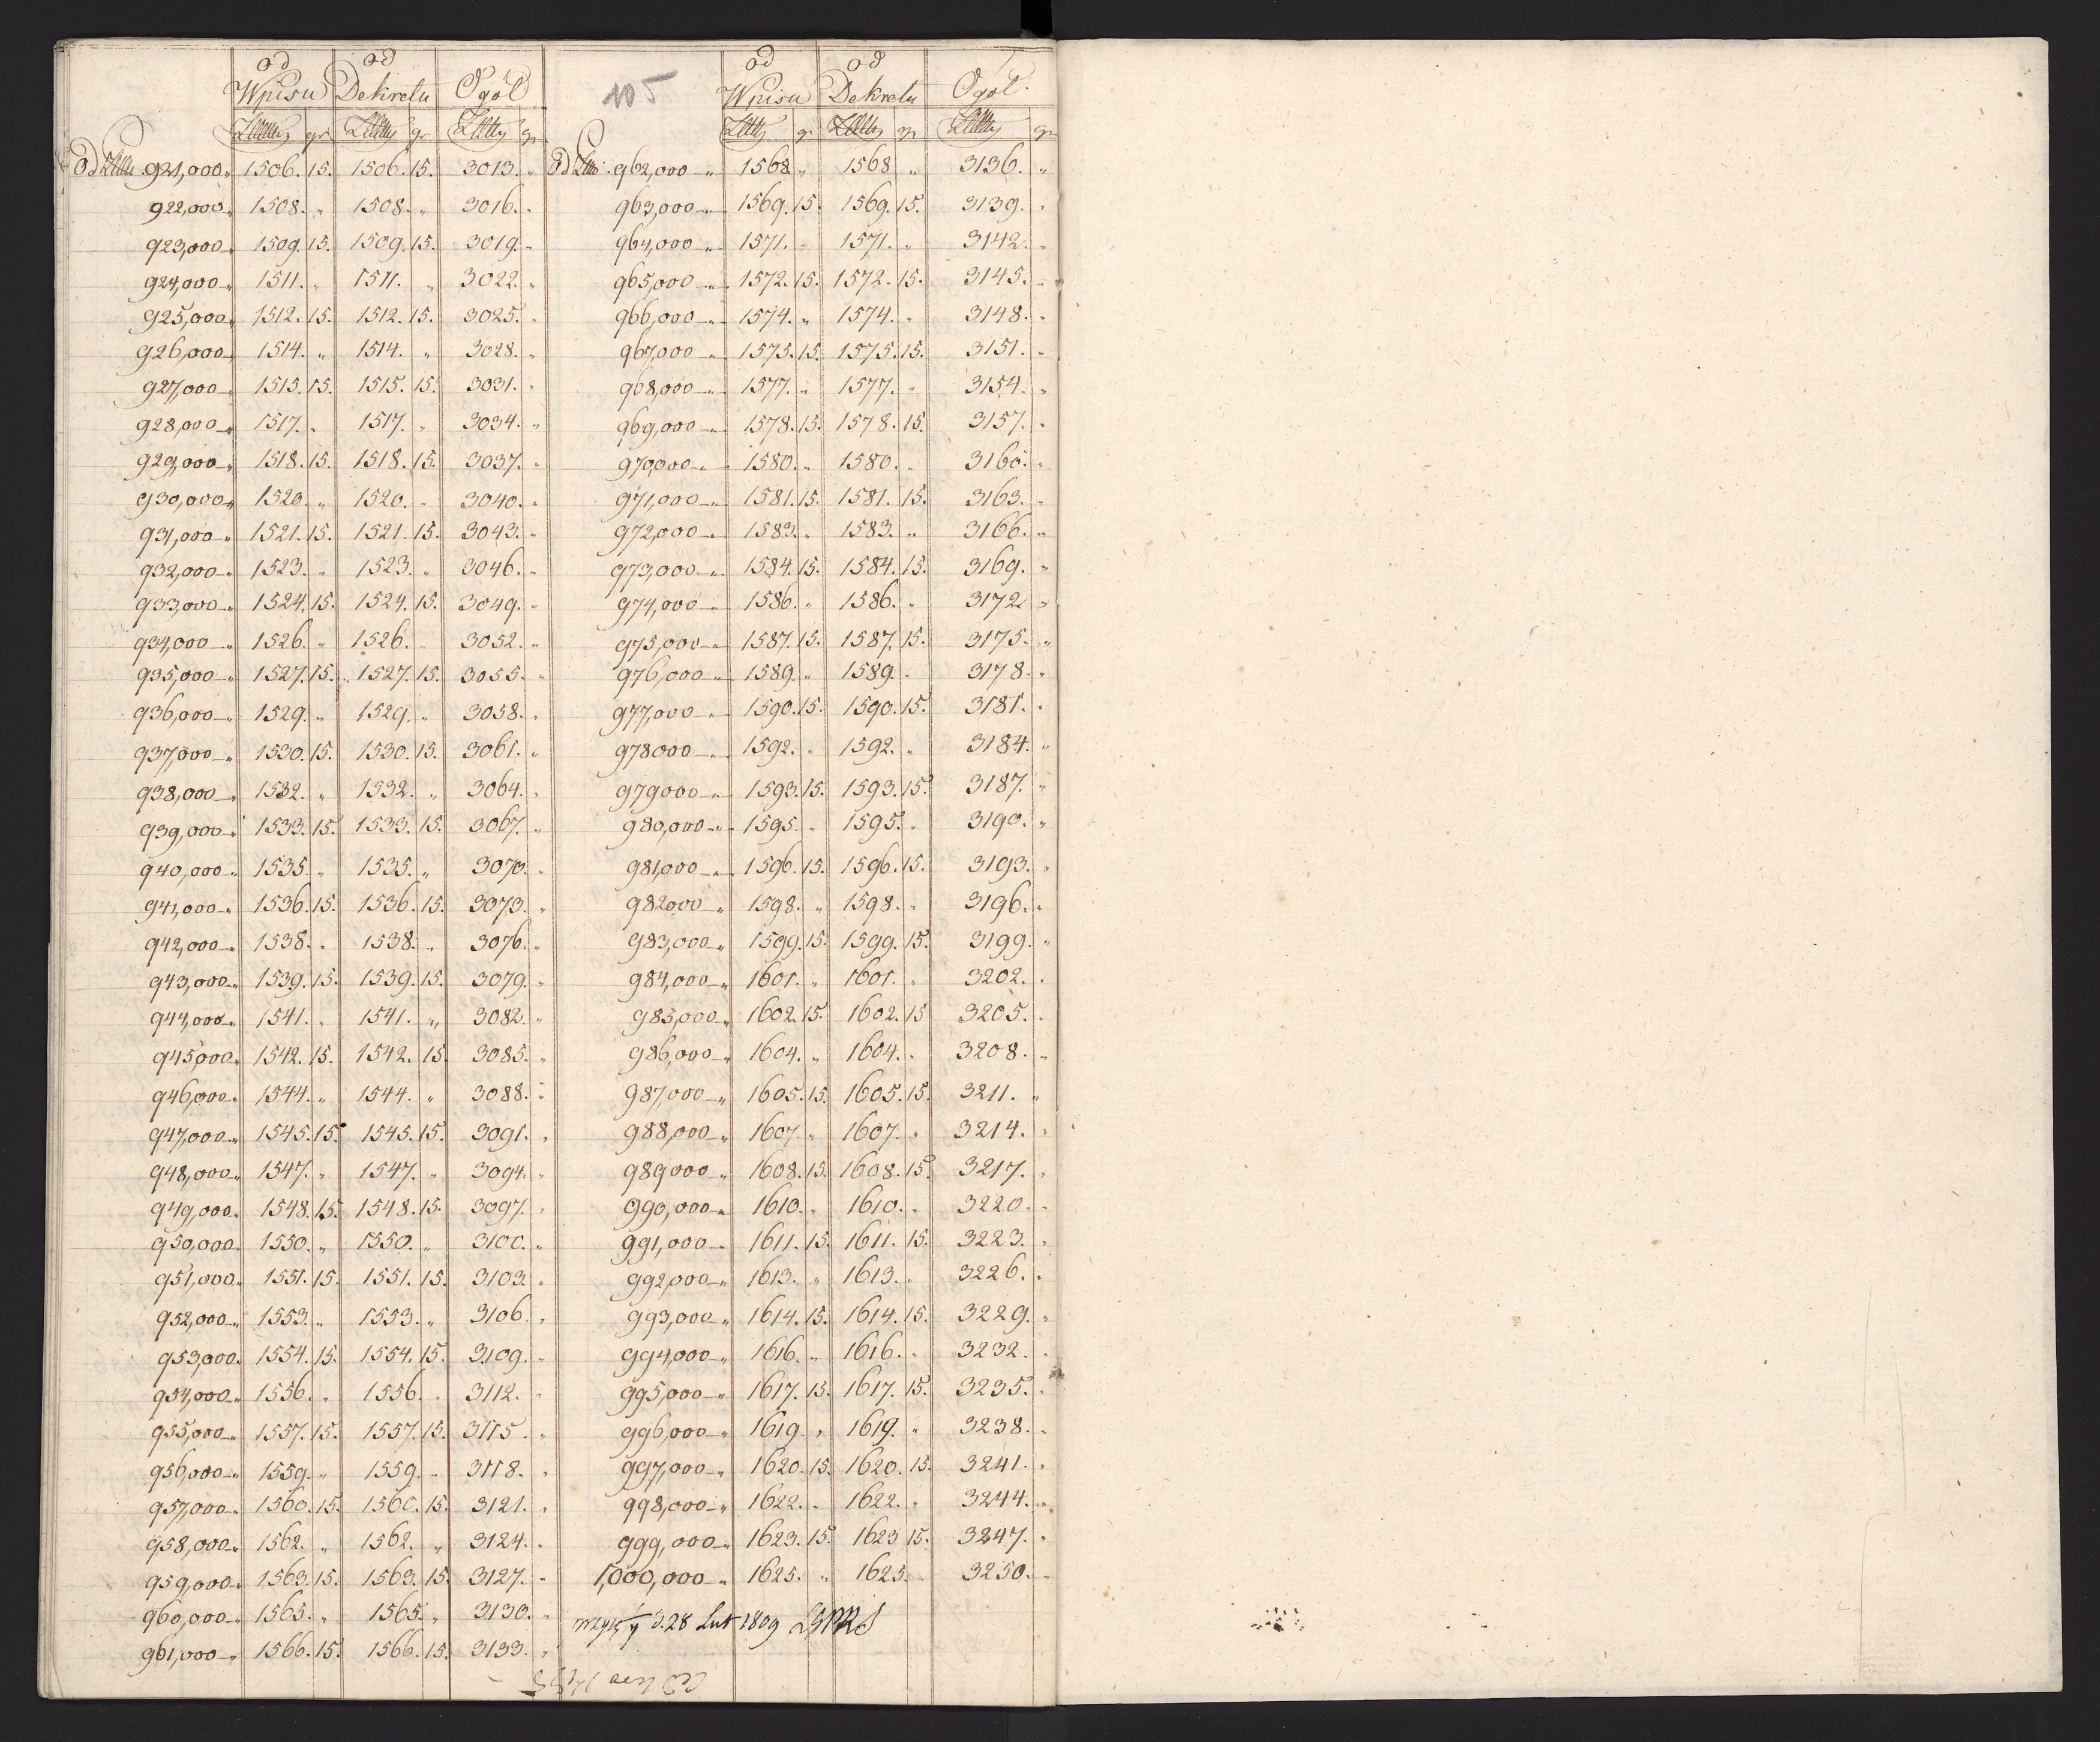 od od
Wpisu Dekretu Ogół
Złotty gr Złotty gr Złotty gr
Od Złłtt. 921,000 „ 1506. 15. 1506. 15. 3013. „
922,000 „ 1508. „ 1508. „ 3016. „
923,000 „ 1509. 15. 1509. 15. 3019. „
924,000 „ 1511. „ 1511. „ 3022. „
925,000 „ 1512. 15. 1512. 15. 3025. „
926,000 „ 1514. „ 1514. „ 3028. „
927,000 „ 1515. 15. 1515. 15. 3031. „
928,000 „ 1517. „ 1517. „ 3034. „
929,000 „ 1518. 15. 1518. 15. 3037. „
930,000 „ 1520. „ 1520. „ 3040. „
931,000 „ 1521. 15. 1521. 15. 3043. „
932,000 „ 1523. „ 1523. „ 3046. „
933,000 „ 1524. 15. 1524. 15. 3049. „
934,000 „ 1526. „ 1526. „ 3052. „
935,000 „ 1527. 15. 1527. 15. 3055. „
936,000 „ 1529. „ 1529. „ 3058. „
937,000 „ 1530. 15. 1530. 15. 3061. „
938,000 „ 1532. „ 1532. „ 3064. „
939,000 „ 1533. 15. 1533. 15. 3067. „
940,000 „ 1535. „ 1535. „ 3070. „
941,000 „ 1536. 15. 1536. 15. 3073. „
942,000 „ 1538. „ 1538. „ 3076. „
943,000 „ 1539. 15. 1539. 15. 3079. „
944,000 „ 1541. „ 1541. „ 3082. „
945,000 „ 1542. 15. 1542. 15. 3085. „
946,000 „ 1544. „ 1544. „ 3088. „
947,000 „ 1545. 15. 1545. 15. 3091. „
948,000 „ 1547. „ 1547. „ 3094. „
949,000 „ 1548. 15. 1548. 15. 3097. „
950,000 „ 1550. „ 1550. „ 3100. „
951,000 „ 1551. 15. 1551. 15. 3103. „
952,000 „ 1553. „ 1553. „ 3106. „
953,000 „ 1554. 15. 1554. 15. 3109. „
954,000 „ 1556. „ 1556. „ 3112. „
955,000 „ 1557. 15. 1557. 15. 3115. „
956,000 „ 1559. „ 1559. „ 3118. „
957,000 „ 1560. 15. 1560. 15. 3121. „
958,000 „ 1562. „ 1562. „ 3124. „
959,000 „ 1563. 15. 1563. 15. 3127. „
960,000 „ 1565. „ 1565. „ 3130. „
961,000 „ 1566. 15. 1566. 15. 3133. „
105
od od
Wpisu Dekretu Ogół.
Złotty gr Złotty gr Złotty gr
Od Złłtt. 962,000 „ 1568. „ 1568 „ 3136. „
963,000 „ 1569. 15. 1569. 15. 3139. „
964,000 „ 1571. „ 1571. „ 3142. „
965,000 „ 1572. 15. 1572. 15. 3145. „
966,000 „ 1574. „ 1574. „ 3148. „
967,000 „ 1575. 15. 1575. 15. 3151. „
968,000 „ 1577. „ 1577. „ 3154. „
969,000 „ 1578. 15. 1578. 15. 3157. „
970,000 „ 1580. „ 1580. „ 3160. „
971,000 „ 1581. 15. 1581. 15. 3163. „
972,000 „ 1583. „ 1583. „ 3166. „
973,000 „ 1584. 15. 1584. 15. 3169. „
974,000 „ 1586. „ 1586. „ 3172. „
975,000 „ 1587. 15. 1587. 15. 3175. „
976,000 „ 1589. „ 1589. „ 3178. „
977,000 „ 1590. 15. 1590. 15. 3181. „
978000 „ 1592. „ 1592. „ 3184. „
979000 „ 1593. 15. 1593. 15. 3187. „
980,000 „ 1595. „ 1595. „ 3190. „
981,000 „ 1596. 15. 1596. 15. 3193. „
982000 „ 1598. „ 1598. „ 3196. „
983,000 „ 1599. 15. 1599. 15. 3199. „
984,000 „ 1601. „ 1601. „ 3202. „
985,000 „ 1602. 15. 1602. 15 3205. „
986,000 „ 1604. „ 1604. „ 3208. „
987,000 „ 1605. 15. 1605. 15. 3211. „
988,000 „ 1607. „ 1607. „ 3214. „
989000 „ 1608. 15. 1608. 15. 3217. „
990,000 „ 1610. „ 1610. „ 3220. „
991,000 „ 1611. 15. 1611. 15. 3223. „
992,000 „ 1613. „ 1613. „ 3226. „
993,000 „ 1614. 15. 1614. 15. 3229. „
994,000 „ 1616. „ 1616. „ 3232. „
995,000 „ 1617. 15. 1617. 15. 3235. „
996,000 „ 1619. „ 1619. „ 3238. „
997,000 „ 1620. 15. 1620. 15. 3241. „
998,000 „ 1622. „ 1622. „ 3244. „
999,000 „ 1623. 15. 1623 15. 3247. „
1,000,000 „ 1625. „ 1625. „ 3250. „
d. 28 Lut 1809